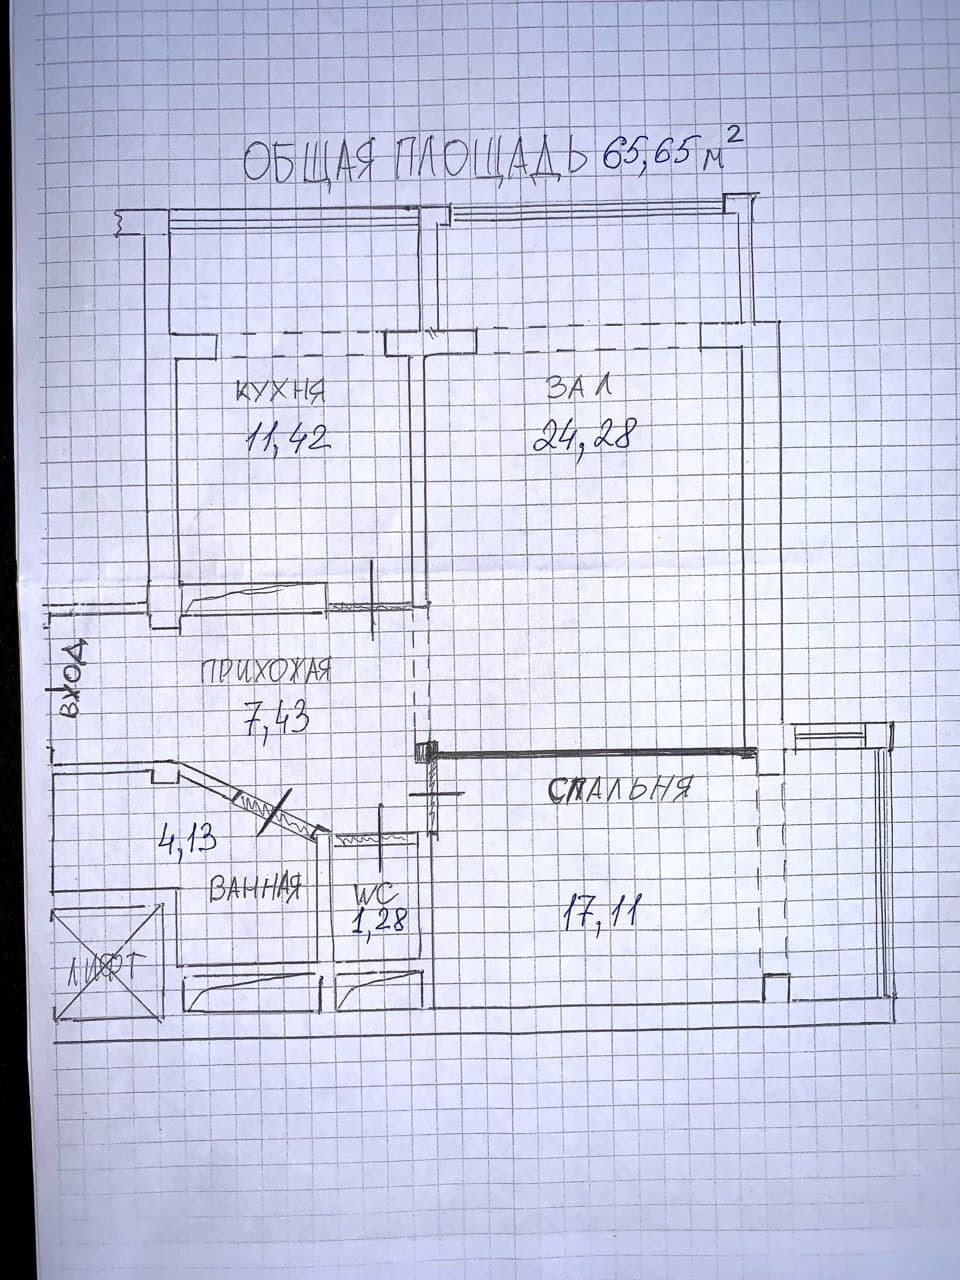 ОБЩАЯ ПЛОЩАДЬ 65,65 м²
КУХНЯ
11,42
ЗАЛ
24,28
ВХОД
ПРИХОЖАЯ
7,43
СПАЛЬНЯ
17,11
4,13
ВАННАЯ
WC
1,28
ЛИФТ